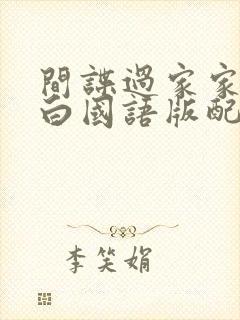 間諜過家家
白國語版配
李笑娟